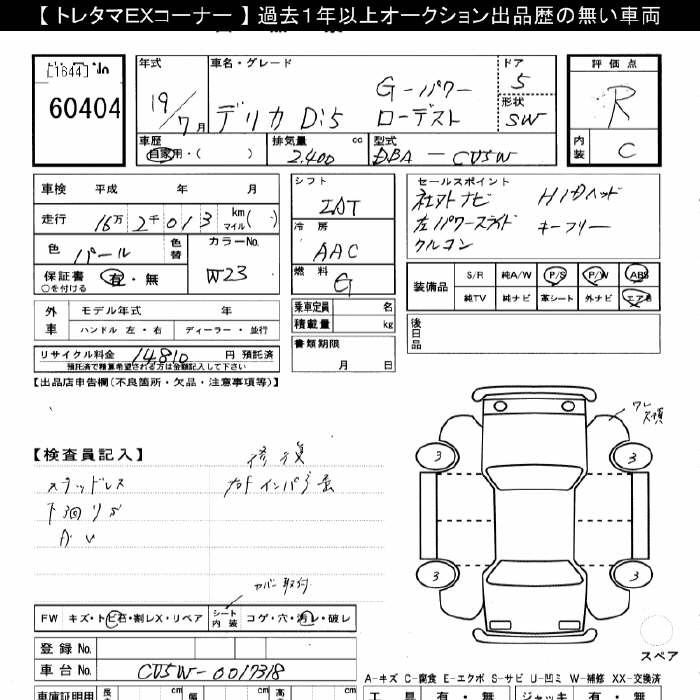 【 トレタマEXコーナー 】 過去1年以上オークション出品歴の無い車両
1644
60404
年式
19/7月
車名・グレード
デリカ D:5 G-パワー
ローデスト
ドア
5
形状
SW
評価点
R
内装
C
車歴
自家用・( )
排気量 cc
2.400
型式
DBA-CV5W
車検 平成 年 月
走行 16万 2千 013 km マイル( )
色 パール 色替
カラーNo.
W23
保証書 有・無
○を付ける
外車 モデル年式 年
ハンドル 左・右 ディーラー・並行
リサイクル料金 14810 円 預託済
預託済で精算希望される方は金額記入して下さい
シフト
IAT
冷房
AAC
燃料
G
乗車定員 名
積載量 kg
書類期限
月 日
セールスポイント
社外ナビ HIDヘッド
左パワースライド キーフリー
クルコン
装備品 S/R 純A/W P/S P/W ABS
純TV 純ナビ 革シート 外ナビ エアB
後日品
【出品店申告欄(不良箇所・欠品・注意事項等)】
【検査員記入】
修復
スタッドレス
下回りサ
ワレ
欠損
3
3
3
3
カバー取付
FW キズ・トビ石・割レX・リペア シート内装 コゲ・穴・汚レ・破レ
登録No.
車台No. CV5W-0017318
スペア
A-キズ C-腐食 E-エクボ S-サビ U-凹ミ W-補修 XX-交換済
車庫証明用 長 cm 幅 cm 高 cm
工具 有・無 ジャッキ 有・無